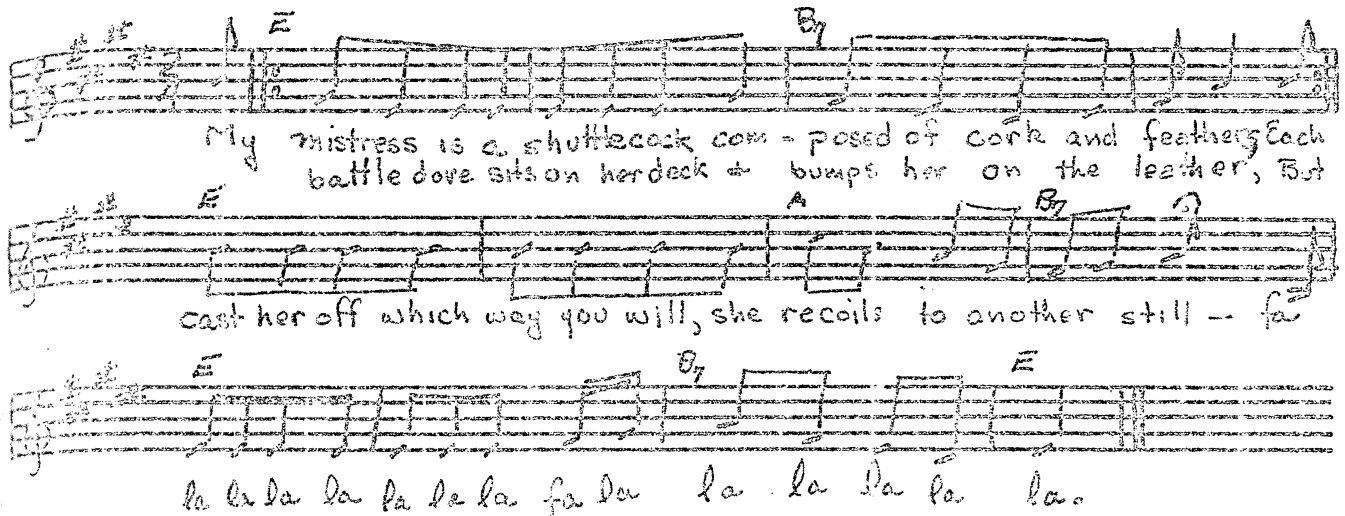 E B7
My mistress is a shuttlecock com - posed of cork and feathers, Each
battle dove sits on her deck + bumps her on the leather, But
E A B7
cast her off which way you will, she recoils to another still -- fa
E B7 E
la la la la la la la fa la la la la la la.